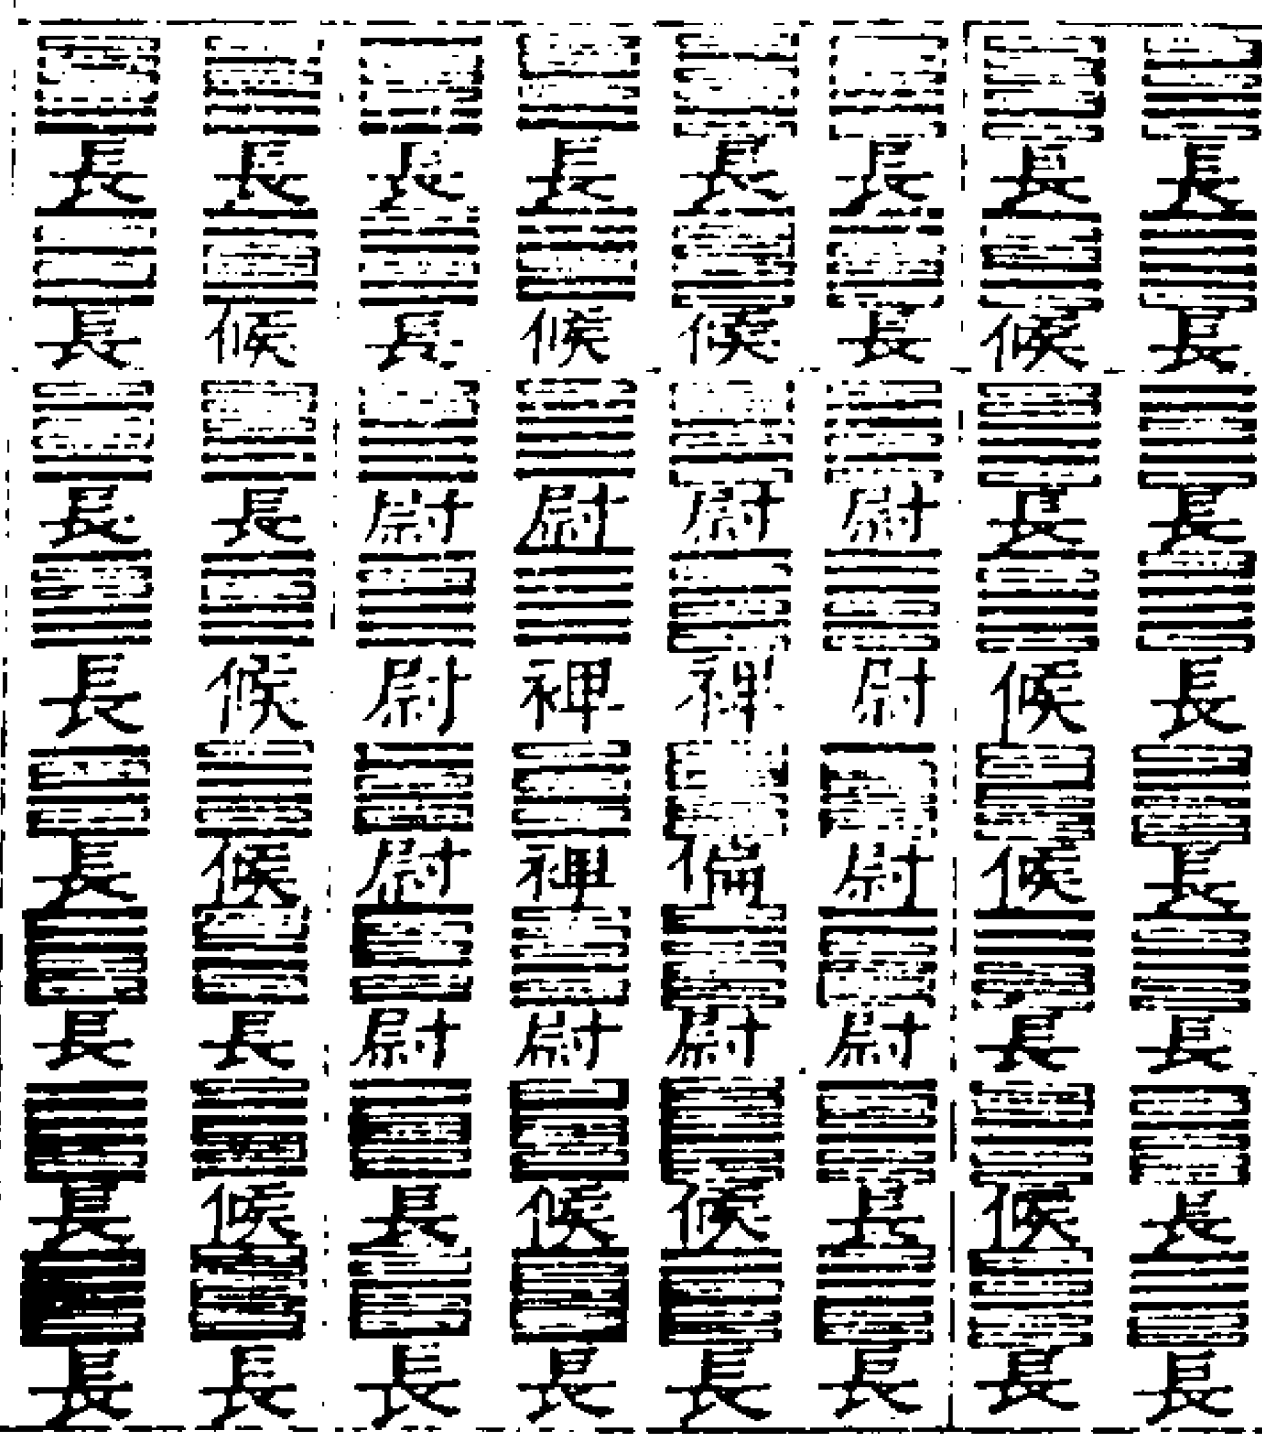 長長長長長長長長
長候長候候長候長
長長尉尉尉尉長長
長候尉裨偏尉候長
長候尉裨裨尉候長
長長尉尉尉尉長長
長候長候候長候長
長長長長長長長長